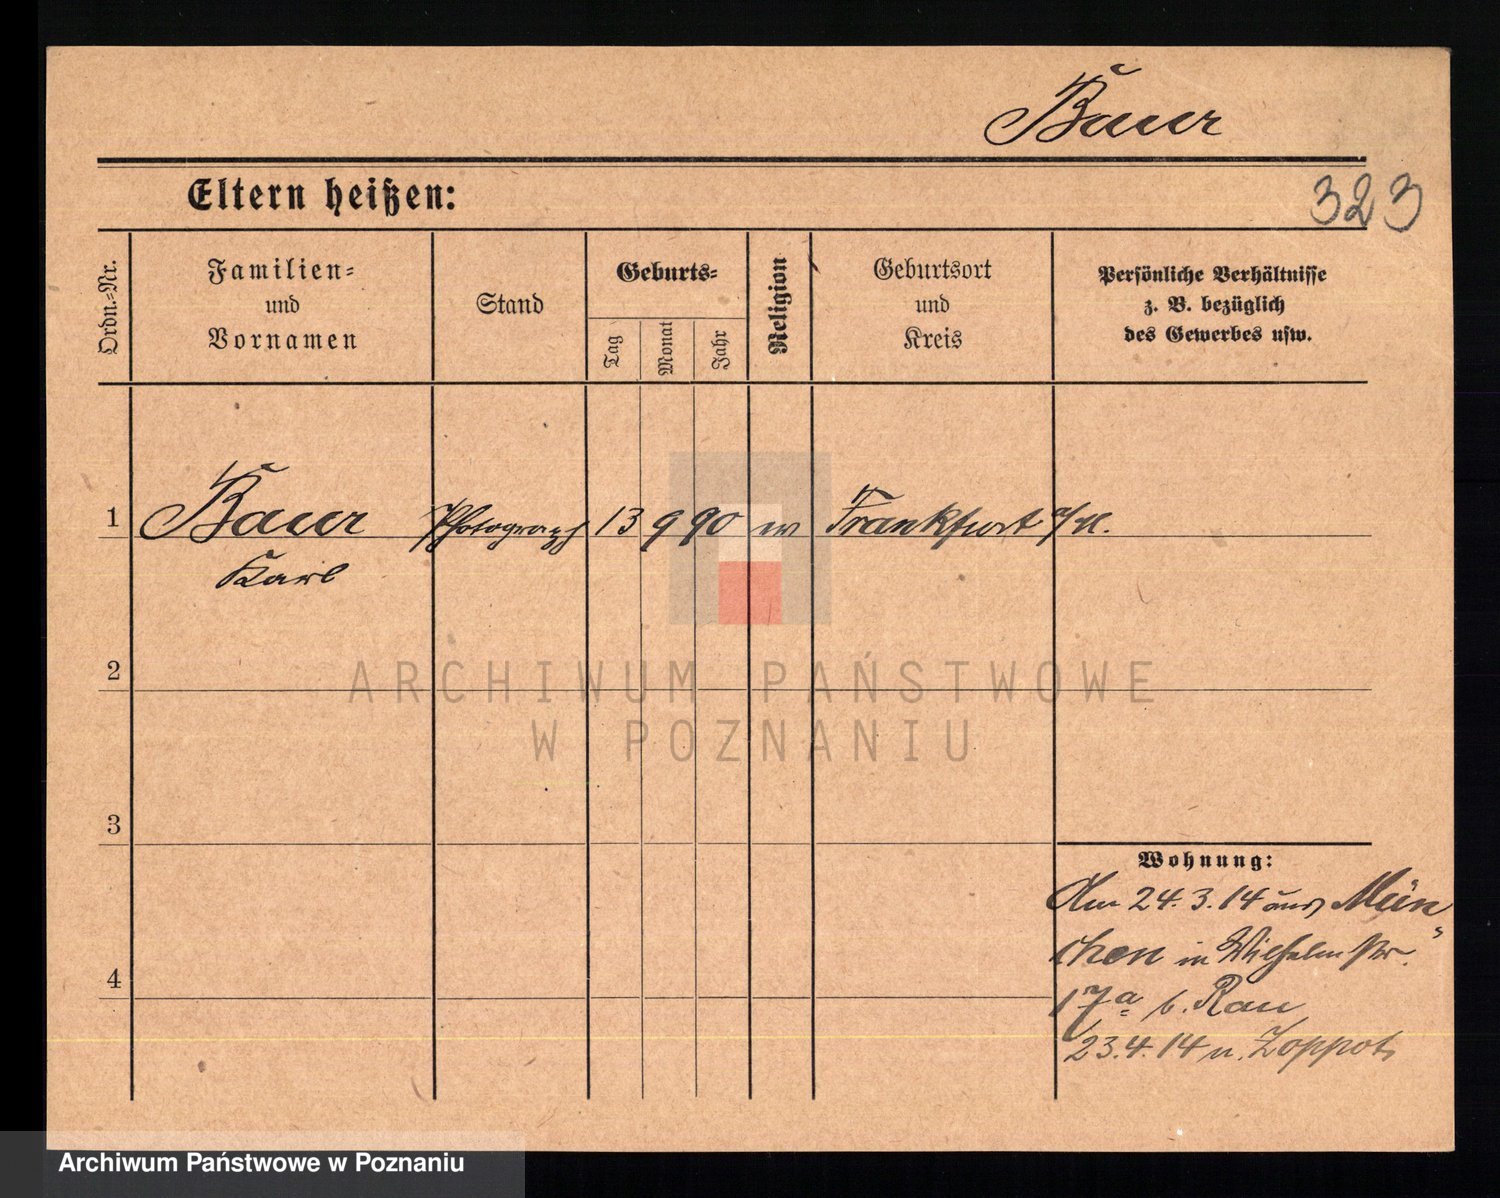 Baur
Eltern heißen:
323
Ordn.=Nr.
Familien=
und
Vornamen
Stand
Geburts=
Tag
Monat
Jahr
Religion
Geburtsort
und
Kreis
Persönliche Verhältnisse
z. B. bezüglich
des Gewerbes usw.
1
Baur
Karl
Photograph
13
9
90
Frankfurt a/M.
2
3
4
Wohnung:
Am 24.3.14 aus Mün
chen in Wilhelmstr.
17a b. Rau
23.4.14 n. Zoppot
ARCHIWUM PAŃSTWOWE
W POZNANIU
Archiwum Państwowe w Poznaniu